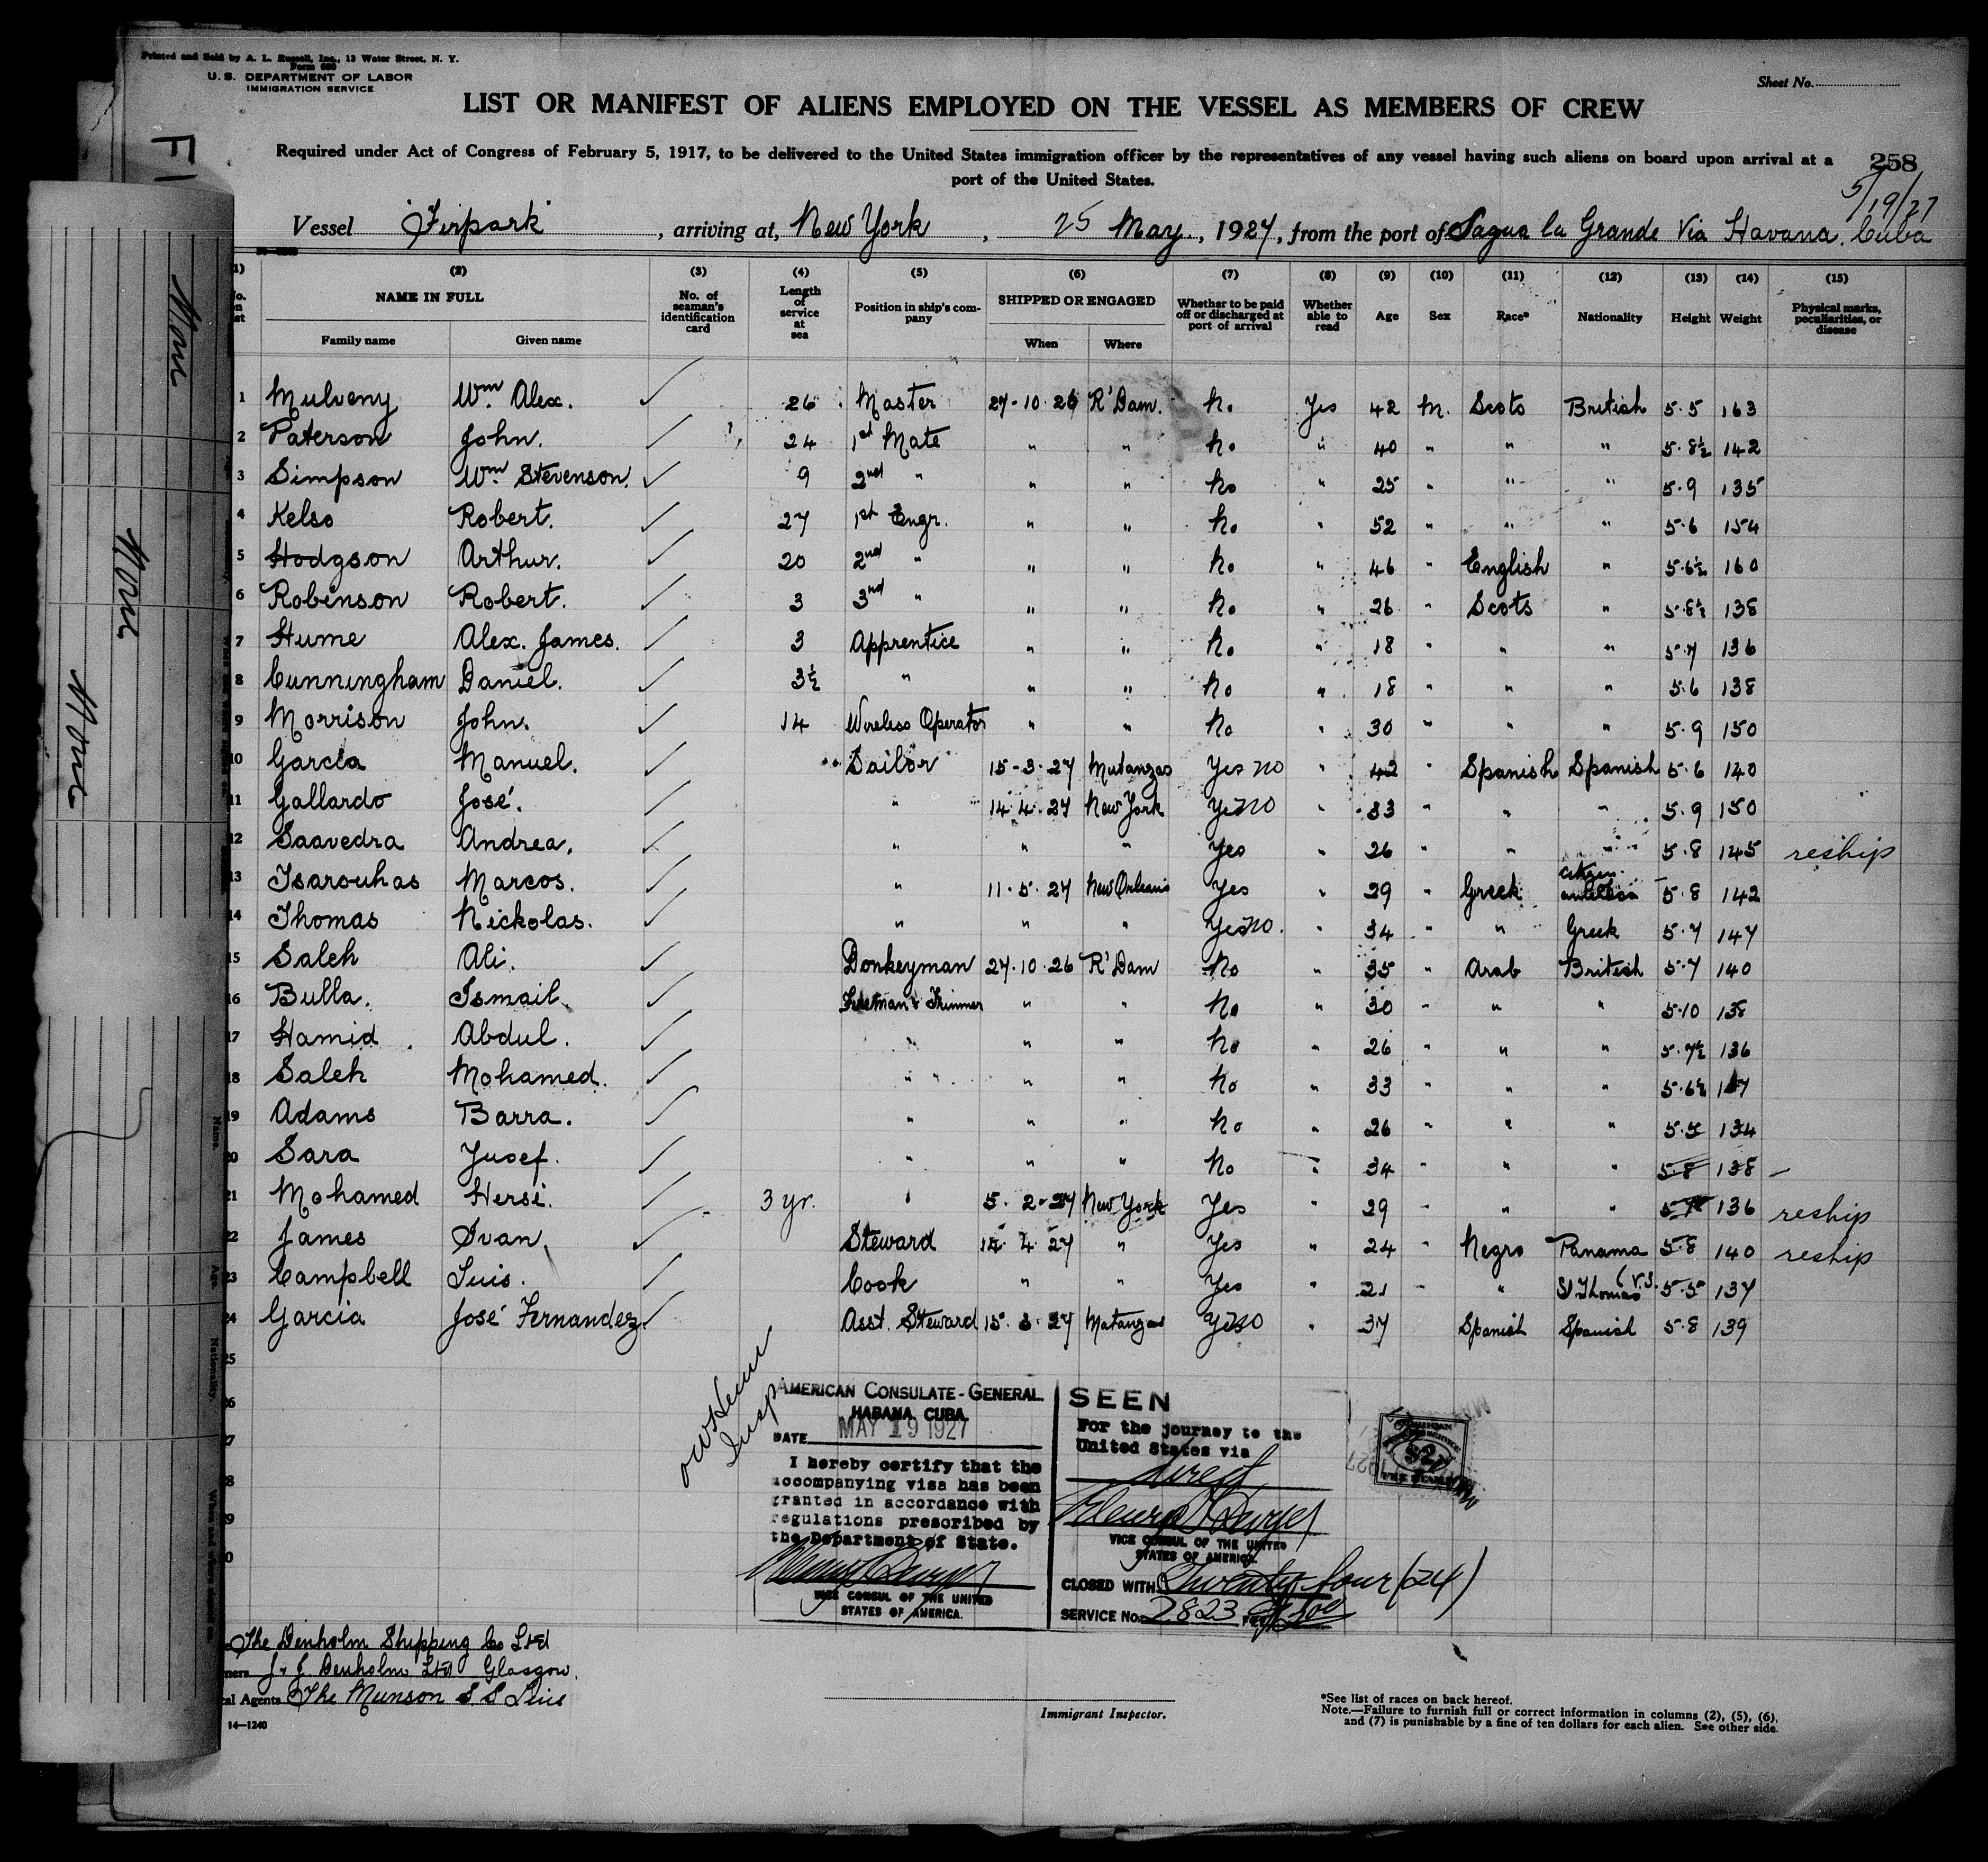 Printed and Sold by A. L. Russell, Inc., 13 Water Street, N. Y.
Form 680
U. S. DEPARTMENT OF LABOR
IMMIGRATION SERVICE
Sheet No.
LIST OR MANIFEST OF ALIENS EMPLOYED ON THE VESSEL AS MEMBERS OF CREW
Required under Act of Congress of February 5, 1917, to be delivered to the United States immigration officer by the representatives of any vessel having such aliens on board upon arrival at a
port of the United States.
258
5/19/27
Vessel "Firpark", arriving at, New York, 25 May, 1927, from the port of Sagua la Grande Via Havana, Cuba
(2) (3) (4) (5) (6) (7) (8) (9) (10) (11) (12) (13) (14) (15)
NAME IN FULL
Family name Given name
No. of seaman's identification card
Length of service at sea
Position in ship's company
SHIPPED OR ENGAGED
When Where
Whether to be paid off or discharged at port of arrival
Whether able to read
Age Sex Race* Nationality Height Weight
Physical marks, peculiarities, or disease
1 Mulveny Wm. Alex. 26 Master 27-10-26 R'Dam. No Yes 42 M. Scots British 5.5 163
2 Paterson John. 24 1st Mate " " No " 40 " " " 5.8½ 142
3 Simpson Wm. Stevenson. 9 2nd " " " No " 25 " " " 5.9 135
4 Kelso Robert. 27 1st Engr. " " No " 52 " " " 5.6 154
5 Hodgson Arthur. 20 2nd " " " No " 46 " English " 5.6½ 160
6 Robinson Robert. 3 3rd " " " No " 26 " Scots " 5.8½ 138
7 Hume Alex. James. 3 Apprentice " " No " 18 " " " 5.7 136
8 Cunningham Daniel. 3½ " " " No " 18 " " " 5.6 138
9 Morrison John. 14 Wireless Operator " " No " 30 " " " 5.9 150
10 Garcia Manuel. Sailor 15-3-27 Matanzas Yes no " 42 " Spanish Spanish 5.6 140
11 Gallardo José. " 14.4.27 New York Yes no " 33 " " " 5.9 150
12 Saavedra Andrea. " " " Yes " 26 " " " 5.8 145 reship
13 Tsarouhas Marcos. " 11.5.27 New Orleans Yes " 29 " Greek citizen 5.8 142
14 Thomas Nickolas. " " " Yes no. " 34 " " Greek 5.7 147
15 Saleh Ali. Donkeyman 27.10.26 R'Dam No " 35 " Arab British 5.7 140
16 Bulla. Ismail. Fireman & Trimmer " " No " 30 " " " 5.10 138
17 Hamid. Abdul. " " " No " 26 " " " 5.7½ 136
18 Saleh Mohamed. " " " " No " 33 " " " 5.6½
19 Adams Barra. " " " No " 26 " " " 5.5 134
20 Sara Yusef. " " " No " 34 " " " 5.8 138
21 Mohamed Hersi. 3 yr. " 5.2.27 New York Yes " 29 " " " 136 reship
22 James Ivan. Steward 14.4.27 " Yes " 24 " Negro Panama 5.8 140 reship
23 Campbell Luis. Cook " " Yes " 21 " " St. Thomas (V.S. 5.5 137
24 Garcia José Fernandez. Asst. Steward 15.3.27 Matanzas Yes no " 37 Spanish Spanish 5.8 139
25
Insp
AMERICAN CONSULATE-GENERAL
HABANA, CUBA.
DATE MAY 19 1927
I hereby certify that the
accompanying visa has been
granted in accordance with
regulations prescribed by
the Department of State.
VICE CONSUL OF THE UNITED
STATES OF AMERICA.
SEEN
For the journey to the
United States via
direct
VICE CONSUL OF THE UNITED
STATES OF AMERICA.
CLOSED WITH Twenty four (24)
SERVICE No. 2823
The Denholm Shipping Co Ltd
J. & J. Denholm Ltd Glasgow.
Agents The Munson S S Line
14-1240
Immigrant Inspector.
*See list of races on back hereof.
Note.—Failure to furnish full or correct information in columns (2), (5), (6),
and (7) is punishable by a fine of ten dollars for each alien. See other side.
None
None
None